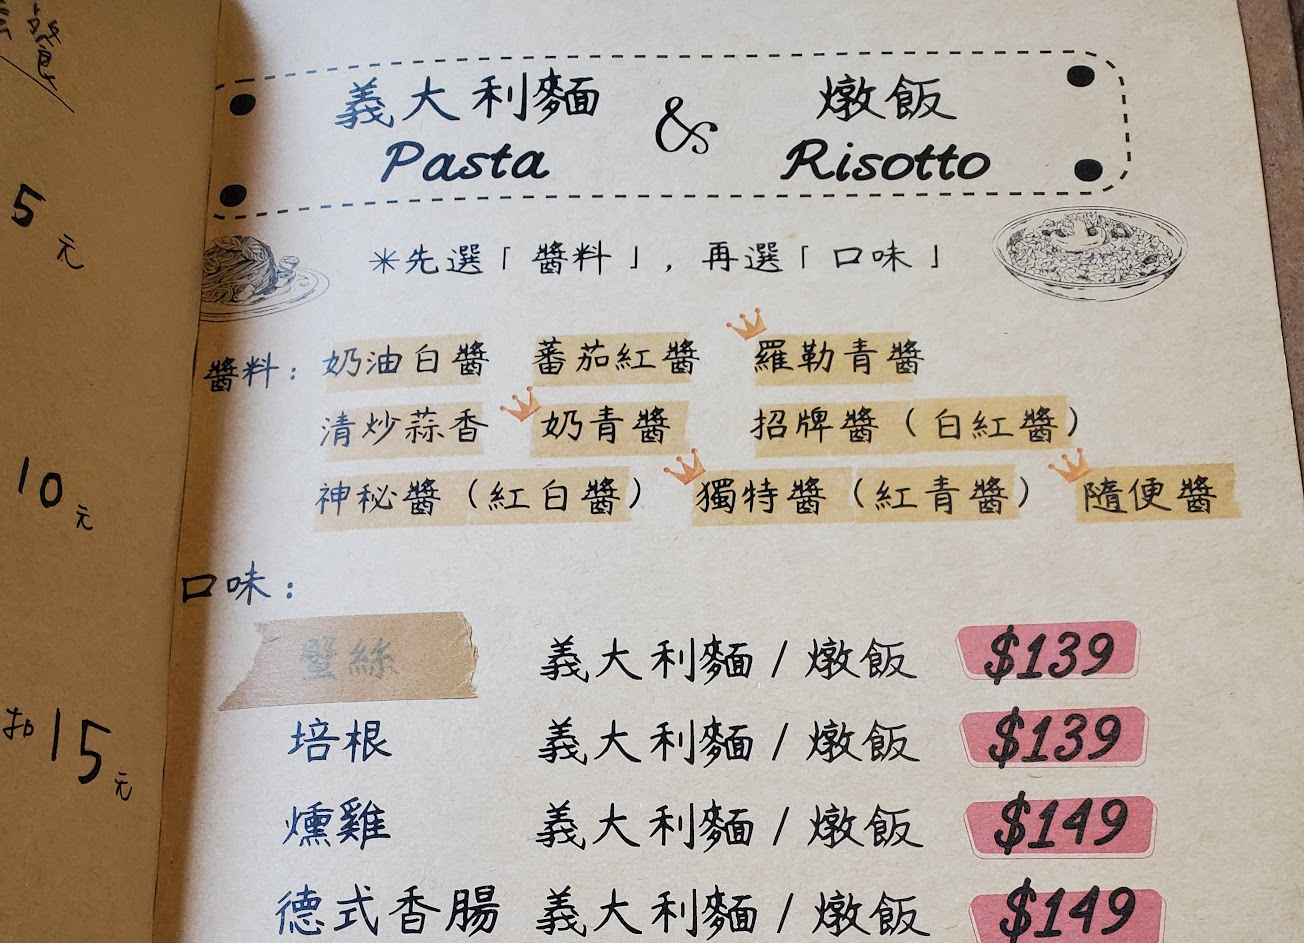 餐
5元
10元
加15元
義大利麵 & 燉飯
Pasta Risotto
＊先選「醬料」，再選「口味」
醬料：奶油白醬 蕃茄紅醬 羅勒青醬
清炒蒜香 奶青醬 招牌醬（白紅醬）
神秘醬（紅白醬） 獨特醬（紅青醬） 隨便醬
口味：
蟹絲 義大利麵 / 燉飯 $139
培根 義大利麵 / 燉飯 $139
燻雞 義大利麵 / 燉飯 $149
德式香腸 義大利麵 / 燉飯 $149